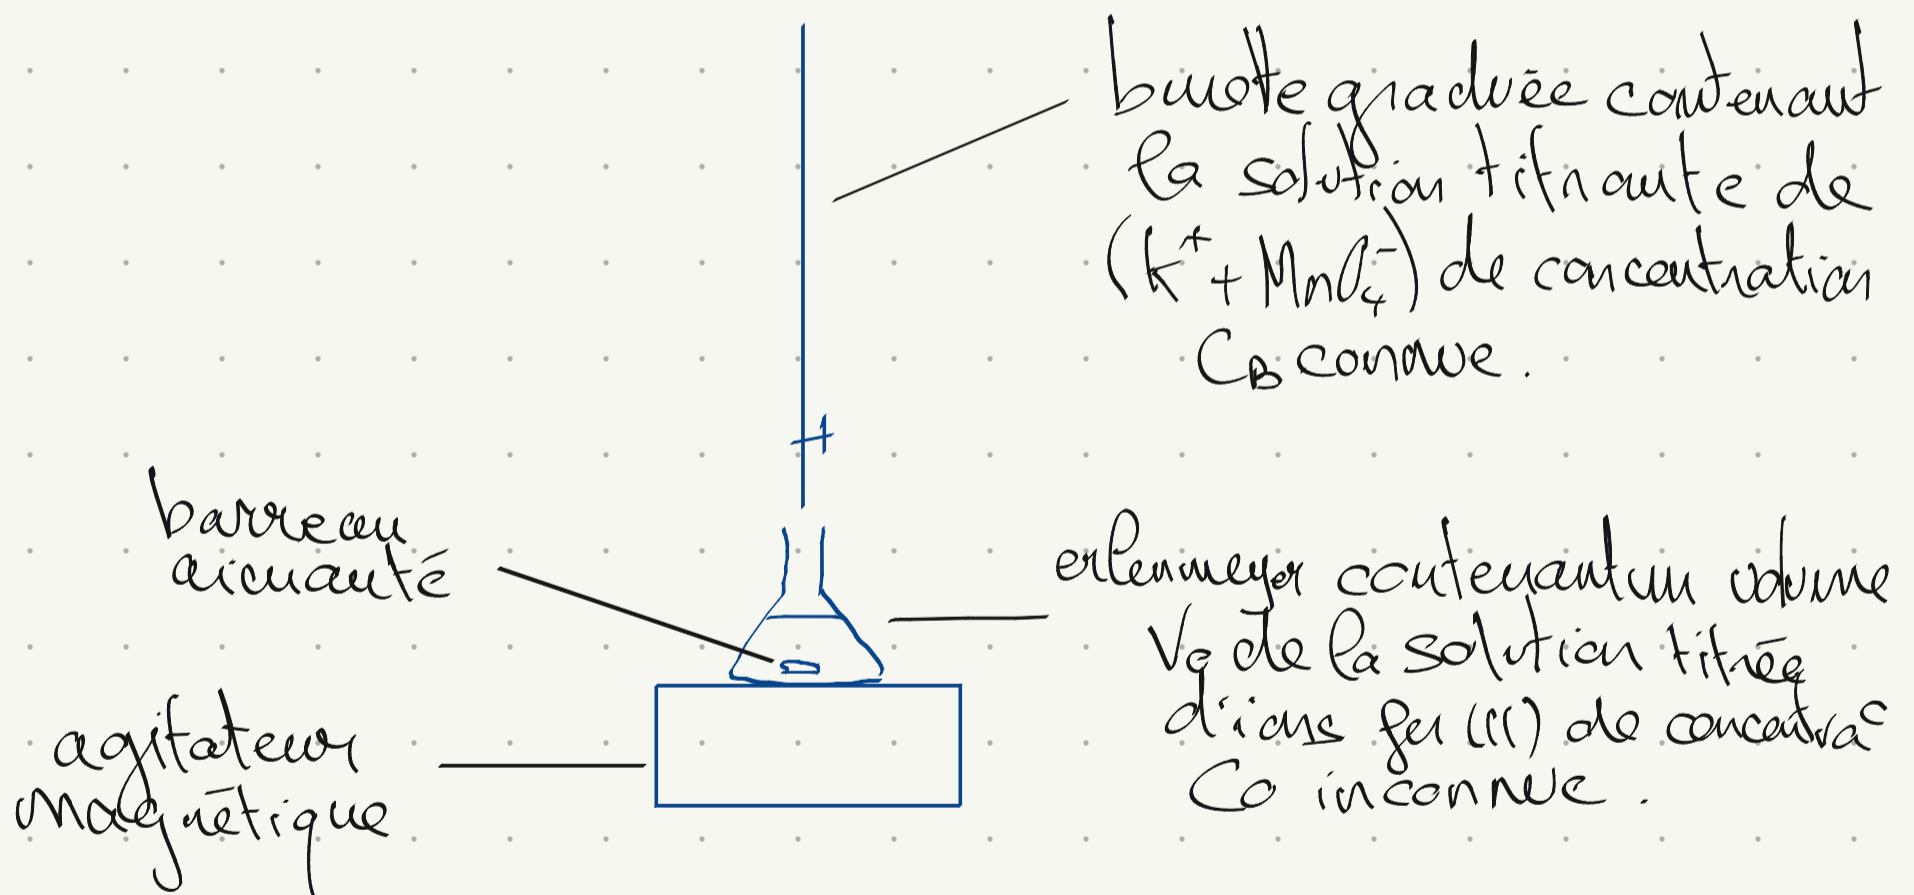 burette graduée contenant
la solution titrante de
(K⁺ + MnO₄⁻) de concentration
C_B connue.
barreau
aimanté
erlenmeyer contenant un volume
V₀ de la solution titrée
d'ions fer (II) de concentra°
C₀ inconnue.
agitateur
magnétique